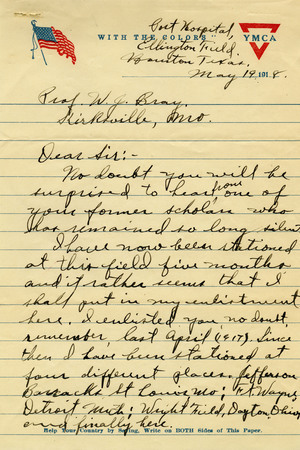 Post Hospital,
WITH THE COLORS
YMCA
Ellington Field.
Houston Texas,
May 19, 1918.
Prof. W. J. Bray,
Kirksville, Mo.
Dear Sir:-
No doubt you will be
surprised to hear from one of
your former scholars who
has remained so long silent.
I have now been stationed
at this field five months
and it rather seems that I
shall put in my enlistment
here. I enlisted you no doubt,
remember, last April (1917). Since
then I have been stationed at
four different places. Jefferson
Barracks St Louis Mo; Ft. Wayne,
Detroit Mich; Wright Field, Dayton, Ohio;
and finally here.
Help Your Country by Saving. Write on BOTH Sides of This Paper.